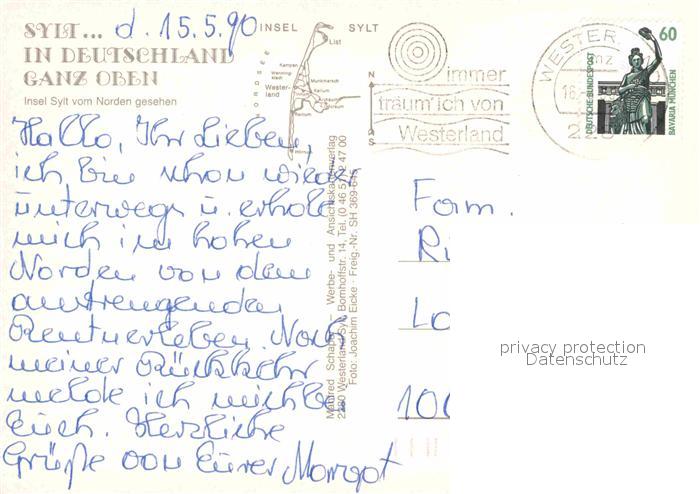 SYLT... d. 15.5.90
IN DEUTSCHLAND
GANZ OBEN
Insel Sylt vom Norden gesehen
INSEL SYLT
NORDSEE
List
Kampen
Wester-
land
N
S
immer
träum' ich von
Westerland
WESTER
16.
DEUTSCHE BUNDESPOST
60
BAVARIA MÜNCHEN
Hallo, Ihr Lieben,
ich bin schon wieder
unterwegs u. erhole
mich im hohen
Norden von dem
anstrengenden
Rentnerleben. Nach
meiner Rückkehr
melde ich mich bei
Euch. Herzliche
Grüße von Eurer Margot
Manfred Schaper – Werbe- und Ansichtskartenverlag
2280 Westerland/Sylt, Bomhoffstr. 14, Tel. (0 46 51) 2 47 00
Foto: Joachim Eicke · Freig.-Nr. SH 369-645
Fam.
Ri
Lo
100
privacy protection
Datenschutz